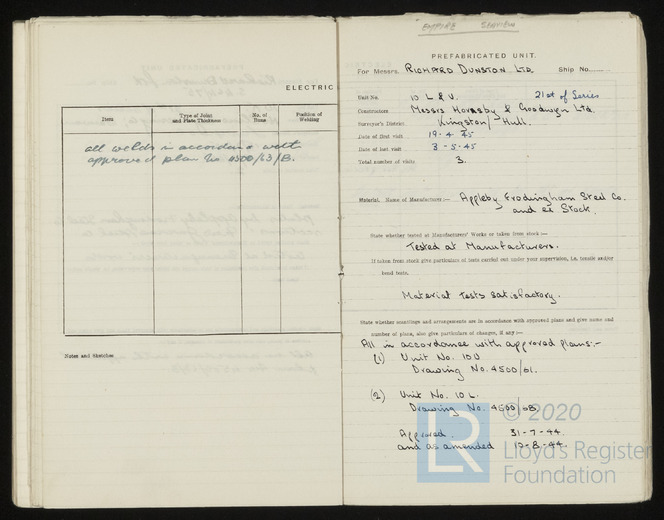 ELECTRIC
Item
Type of Joint and Plate Thickness
No. of Runs
Position of Welding
all welds in accordance with
approved plan No 4500/63/B.
Notes and Sketches
EMPIRE
PREFABRICATED UNIT.
For Messrs. RICHARD DUNSTON LTD Ship No.......
Unit No. 10 L & U. 21st of Series
Constructors Messrs Hornsby & Goodwyn Ltd.
Surveyor's District Kingston/Hull.
Date of first visit 19-4-45
Date of last visit 3-5-45
Total number of visits 3.
Material. Name of Manufacturer:— Appleby Frodingham Steel Co.
and ex Stock.
State whether tested at Manufacturers' Works or taken from stock:—
Tested at Manufacturers.
If taken from stock give particulars of tests carried out under your supervision, i.e. tensile and/or
bend tests.
Material Tests satisfactory.
State whether scantlings and arrangements are in accordance with approved plans and give name and
number of plans, also give particulars of changes, if any:—
All in accordance with approved plans:-
(1) Unit No. 10 U
Drawing No. 4500/61.
(2) Unit No. 10 L.
Drawing No. 4500/6B.
Approved. 31-7-44.
and as amended 10-8-44.
© 2020
LR
Lloyd's Register
Foundation